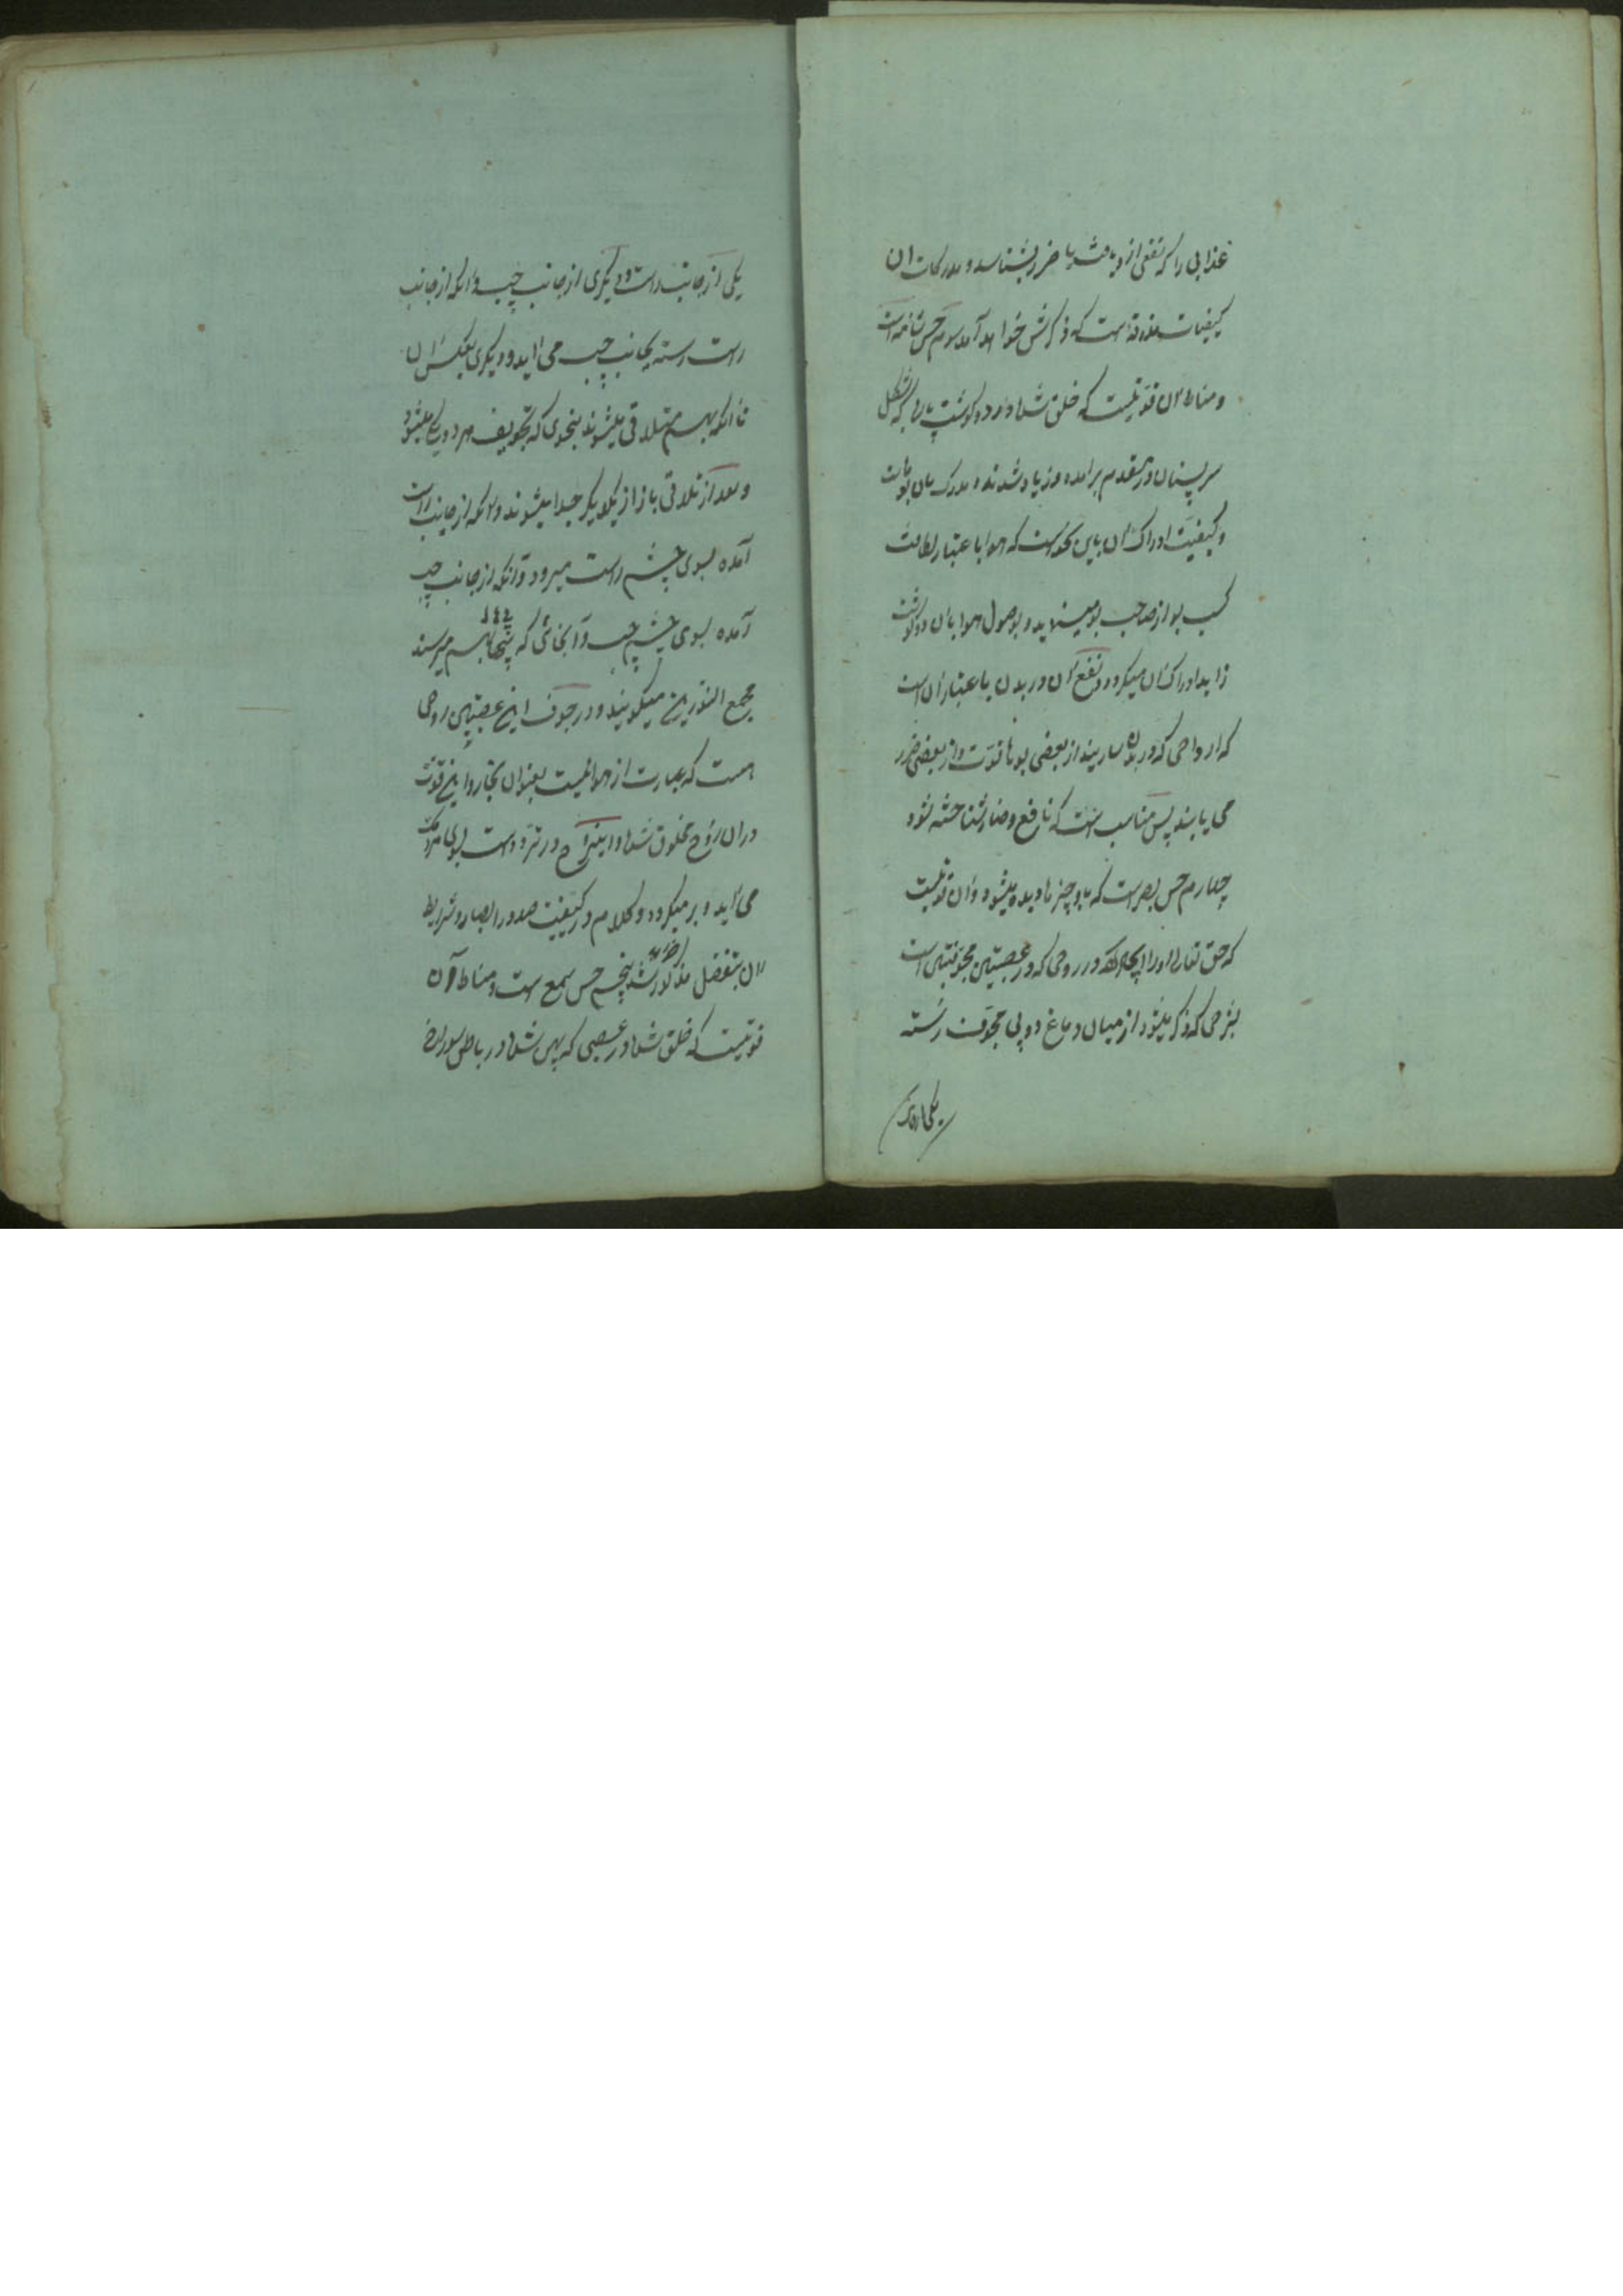 غذایی را که نفعی ازو یافت یا ضرر بشناسد و مدرکات ان
کیفیات مذوقه است که ذکرش خواهد آمد سوم حس شامه است
و مناط ان قوتیست که خلق شده در دو گوشت پاره که شکل
سر پستان در مقدم برامده و زیاد شدنده مدرک بان بوهاست
و کیفیت ادراک ان باین نحو است که هوا باعتبار لطافت
کسب بو از صاحب بو مینماید و بوصول هوا بان دو گوشت
زاید ادراک ان میگردد و نفع ان در بدن باعتبار ان است
که ارواحی که در بدن ساریند از بعضی بوها قوت و از بعضی ضرر
می یابند پس مناسب است که نافع و ضار شناخته شود
چهارم حس بصر است که باو چیزها دیده میشود و ان قوتیست
که حق تعالی او را ایجاد کرده در روحی که در عصبتین مجوفتین است
بشرحی که ذکر میشود از میان دماغ دو پی مجوف رسته
یکی از جانب
یکی از جانب راست و دیگری از جانب چپ و انکه از جانب
راست رسته بجانب چپ می اید و دیگری بعکس ان
تا انکه بهم متلاقی میشوند بنحوی که تجویف هر دو یکی میشود
و بعد از تلاقی باز از یکدیگر جدا میشوند و انکه از جانب راست
آمده بسوی چشم راست میرود و آنکه از جانب چپ
آمده بسوی چشم چپ و آنجائی که پیها بهم میرسند
مجمع النورین میگویند و در جوف این عصبتین روحی
هست که عبارت از هوائیست بعنوان بخار و این قوت
دران روح مخلوق شده و این روح در تردد است بسوی مردمک
می آید و بر میگردد و کلام در کیفیت صدور ابصار و شرایط
ان بتفصیل مذکور خواهد شد پنجم حس سمع است و مناط آن
قوتیست که خلق شده در عصبی که پهن شده در باطن سوراخ